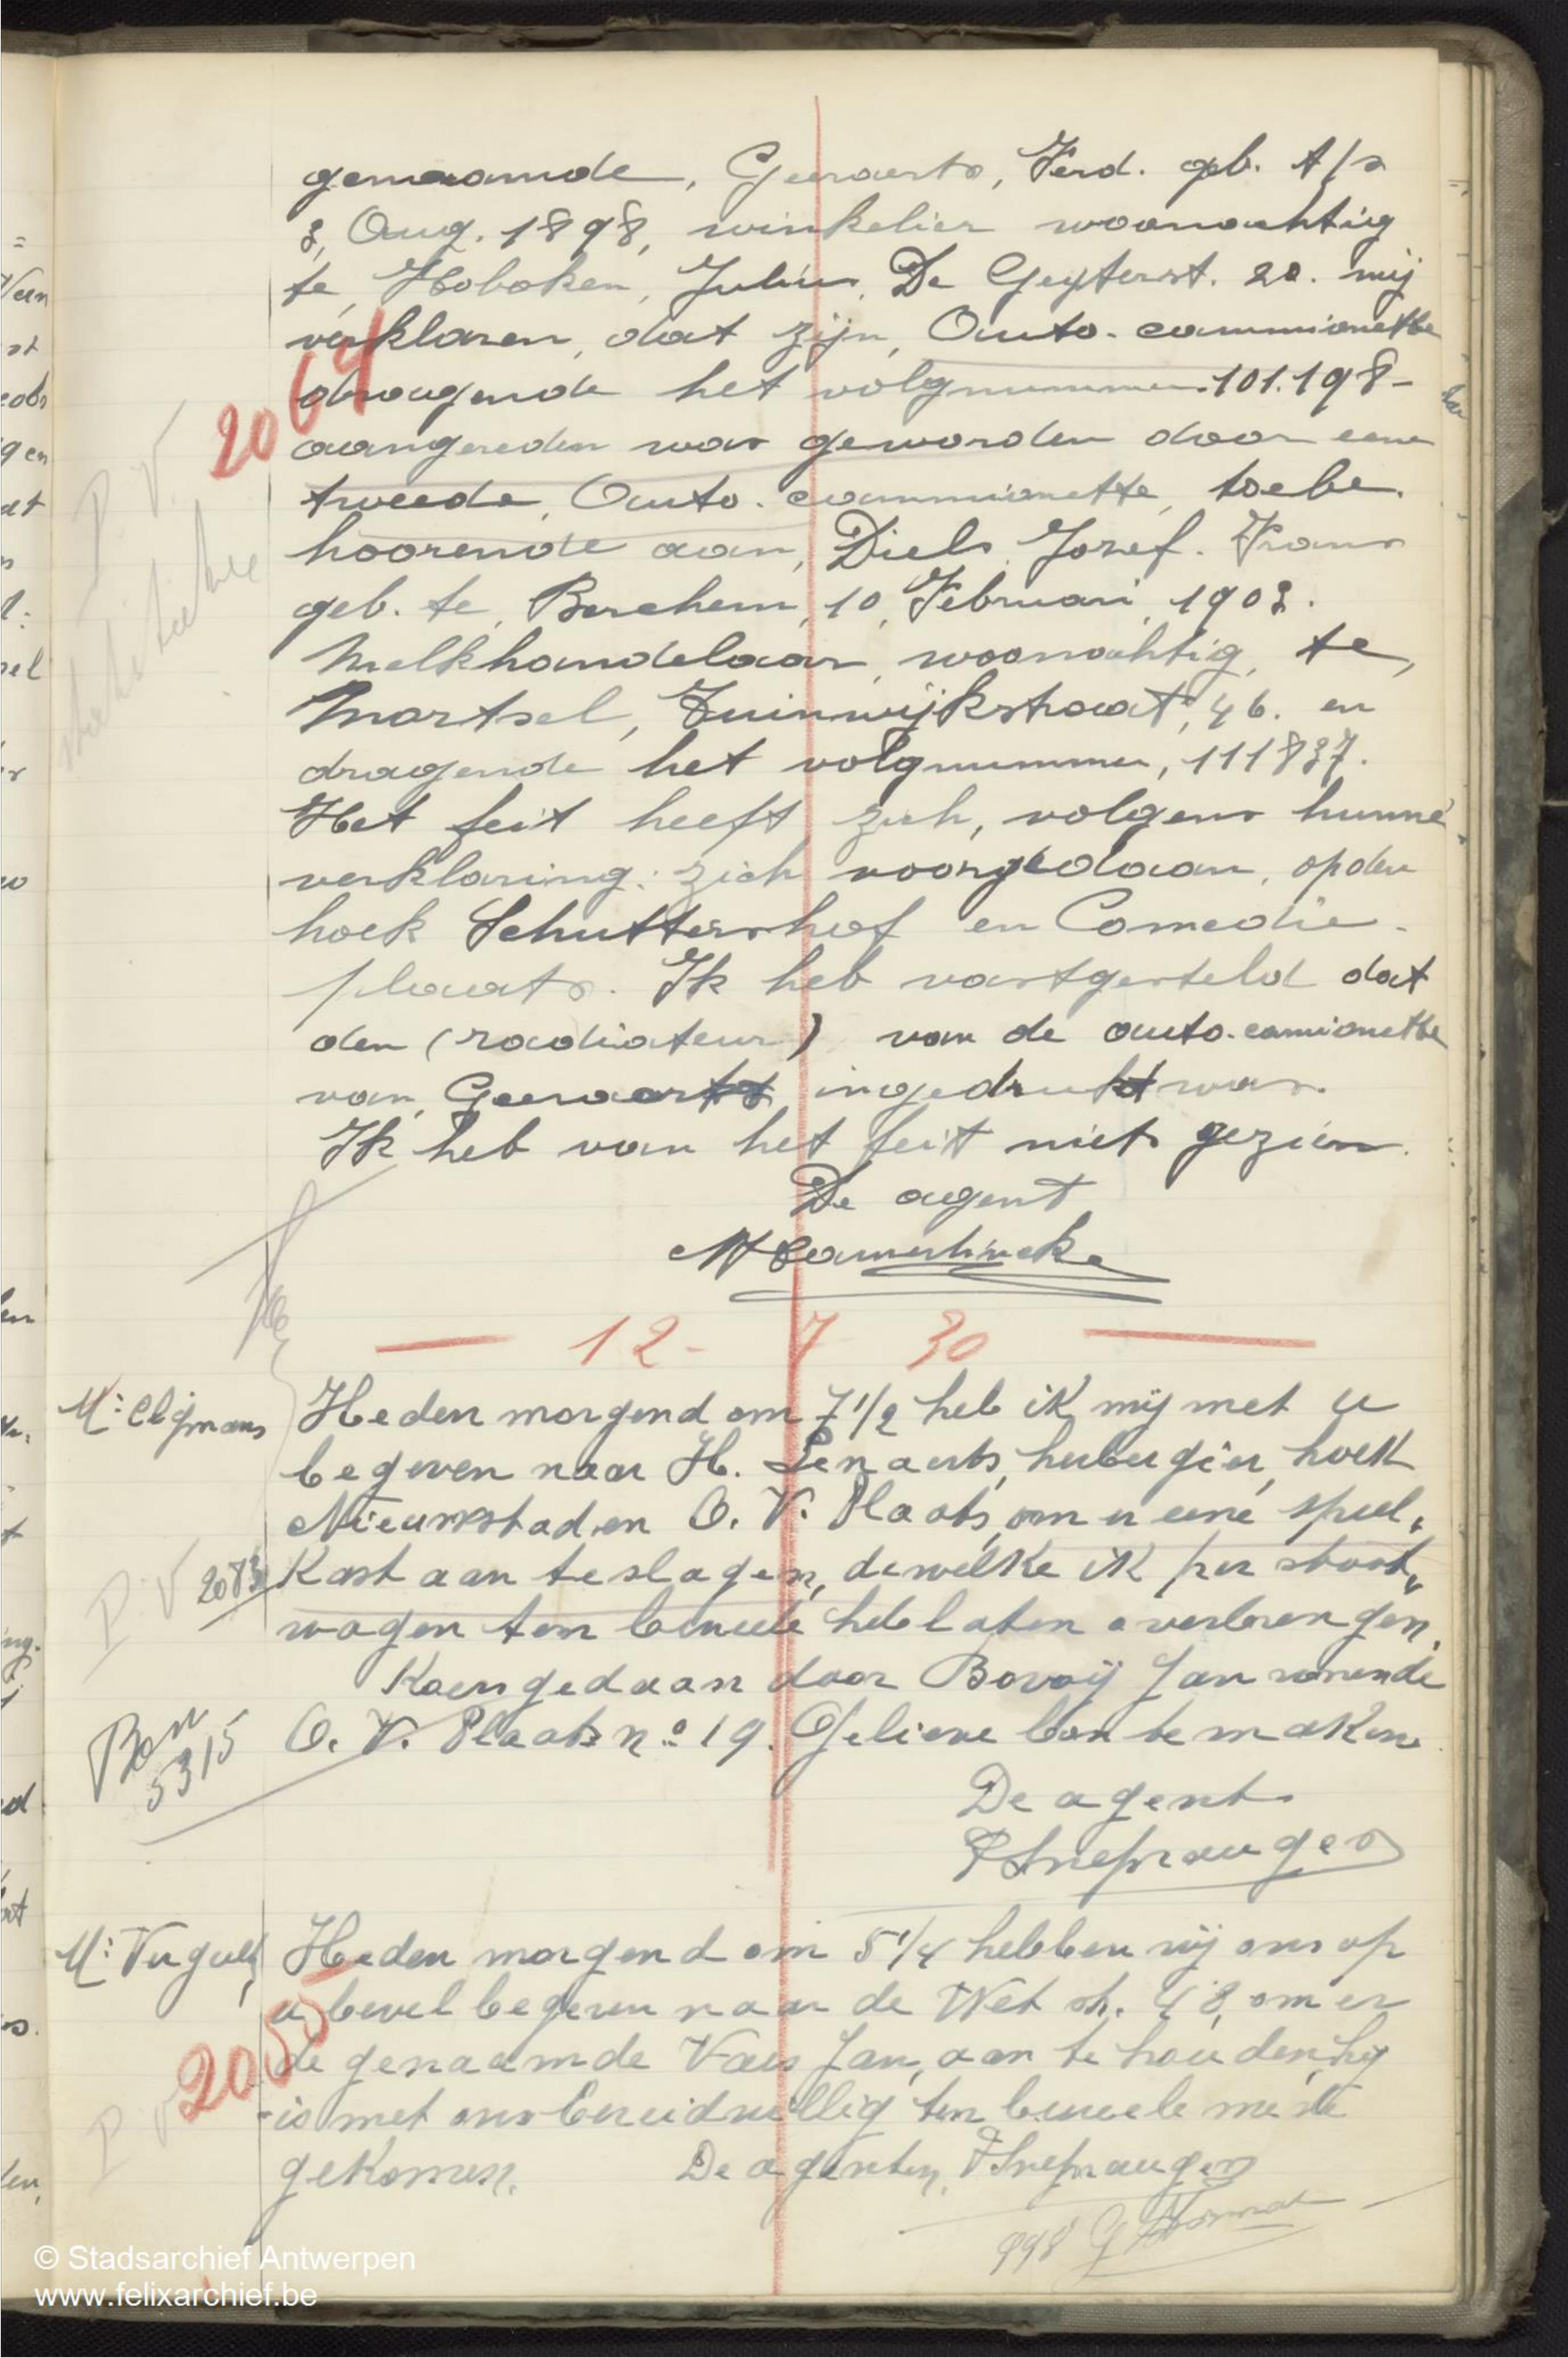 genaamde, Geeraerts, Ferd. geb. A/s
3, Aug. 1898, winkelier woonachtig
te Hoboken, Julius De Geyterst. 20. mij
verklaren, dat zijn, Auto-cammionette
2064
dragende het volgnummer 101.198-
aangereden was geworden door eene
P. V.
tweede, Auto-cammionette, toebe.
hoorende aan, Diels Jozef. Frans
geb. te, Berchem, 10, Februari, 1903.
Melkhandelaar, woonachtig, te,
Mortsel, Tuinwijkstraat, 46. en
dragende het volgnummer, 111837.
Het feit heeft zich, volgens hunne
verklaring: zich voorgedaan, op den
hoek Schuttershof en Comedie-
plaats. Ik heb vastgesteld dat
den (radiateur) van de auto-camionette
van, Geeraerts ingedrukt was.
Ik heb van het feit niets gezien.
De agent
— 12- 7 30 —
Mr Clijmans
Heden morgend om 7 1/2 heb ik mij met u
begeven naar H. Lenaerts, herbergier, hoek
Nieuwstad en O. V. Plaats, om er eene speel„
P. V 2083
kast aan te slagen, dewelke ik per stoot„
wagen ten bureele heb laten overbrengen.
Koers gedaan door Bovoij Jan wonende
Bon
5315
O. V. Plaats n° 19. Gelieve bon te maken.
De agent
F Snepvangers
Mr Vergult
Heden morgend om 5 1/4 hebben wij ons op
u bevel begeven naar de Wet st. 48, om er
de genaamde Vaes Jan, aan te houden, hij
P V
is met ons bereidwillig ten bureele mede
gekomen. De agenten, F Snepvangers
998 G
© Stadsarchief Antwerpen
www.felixarchief.be